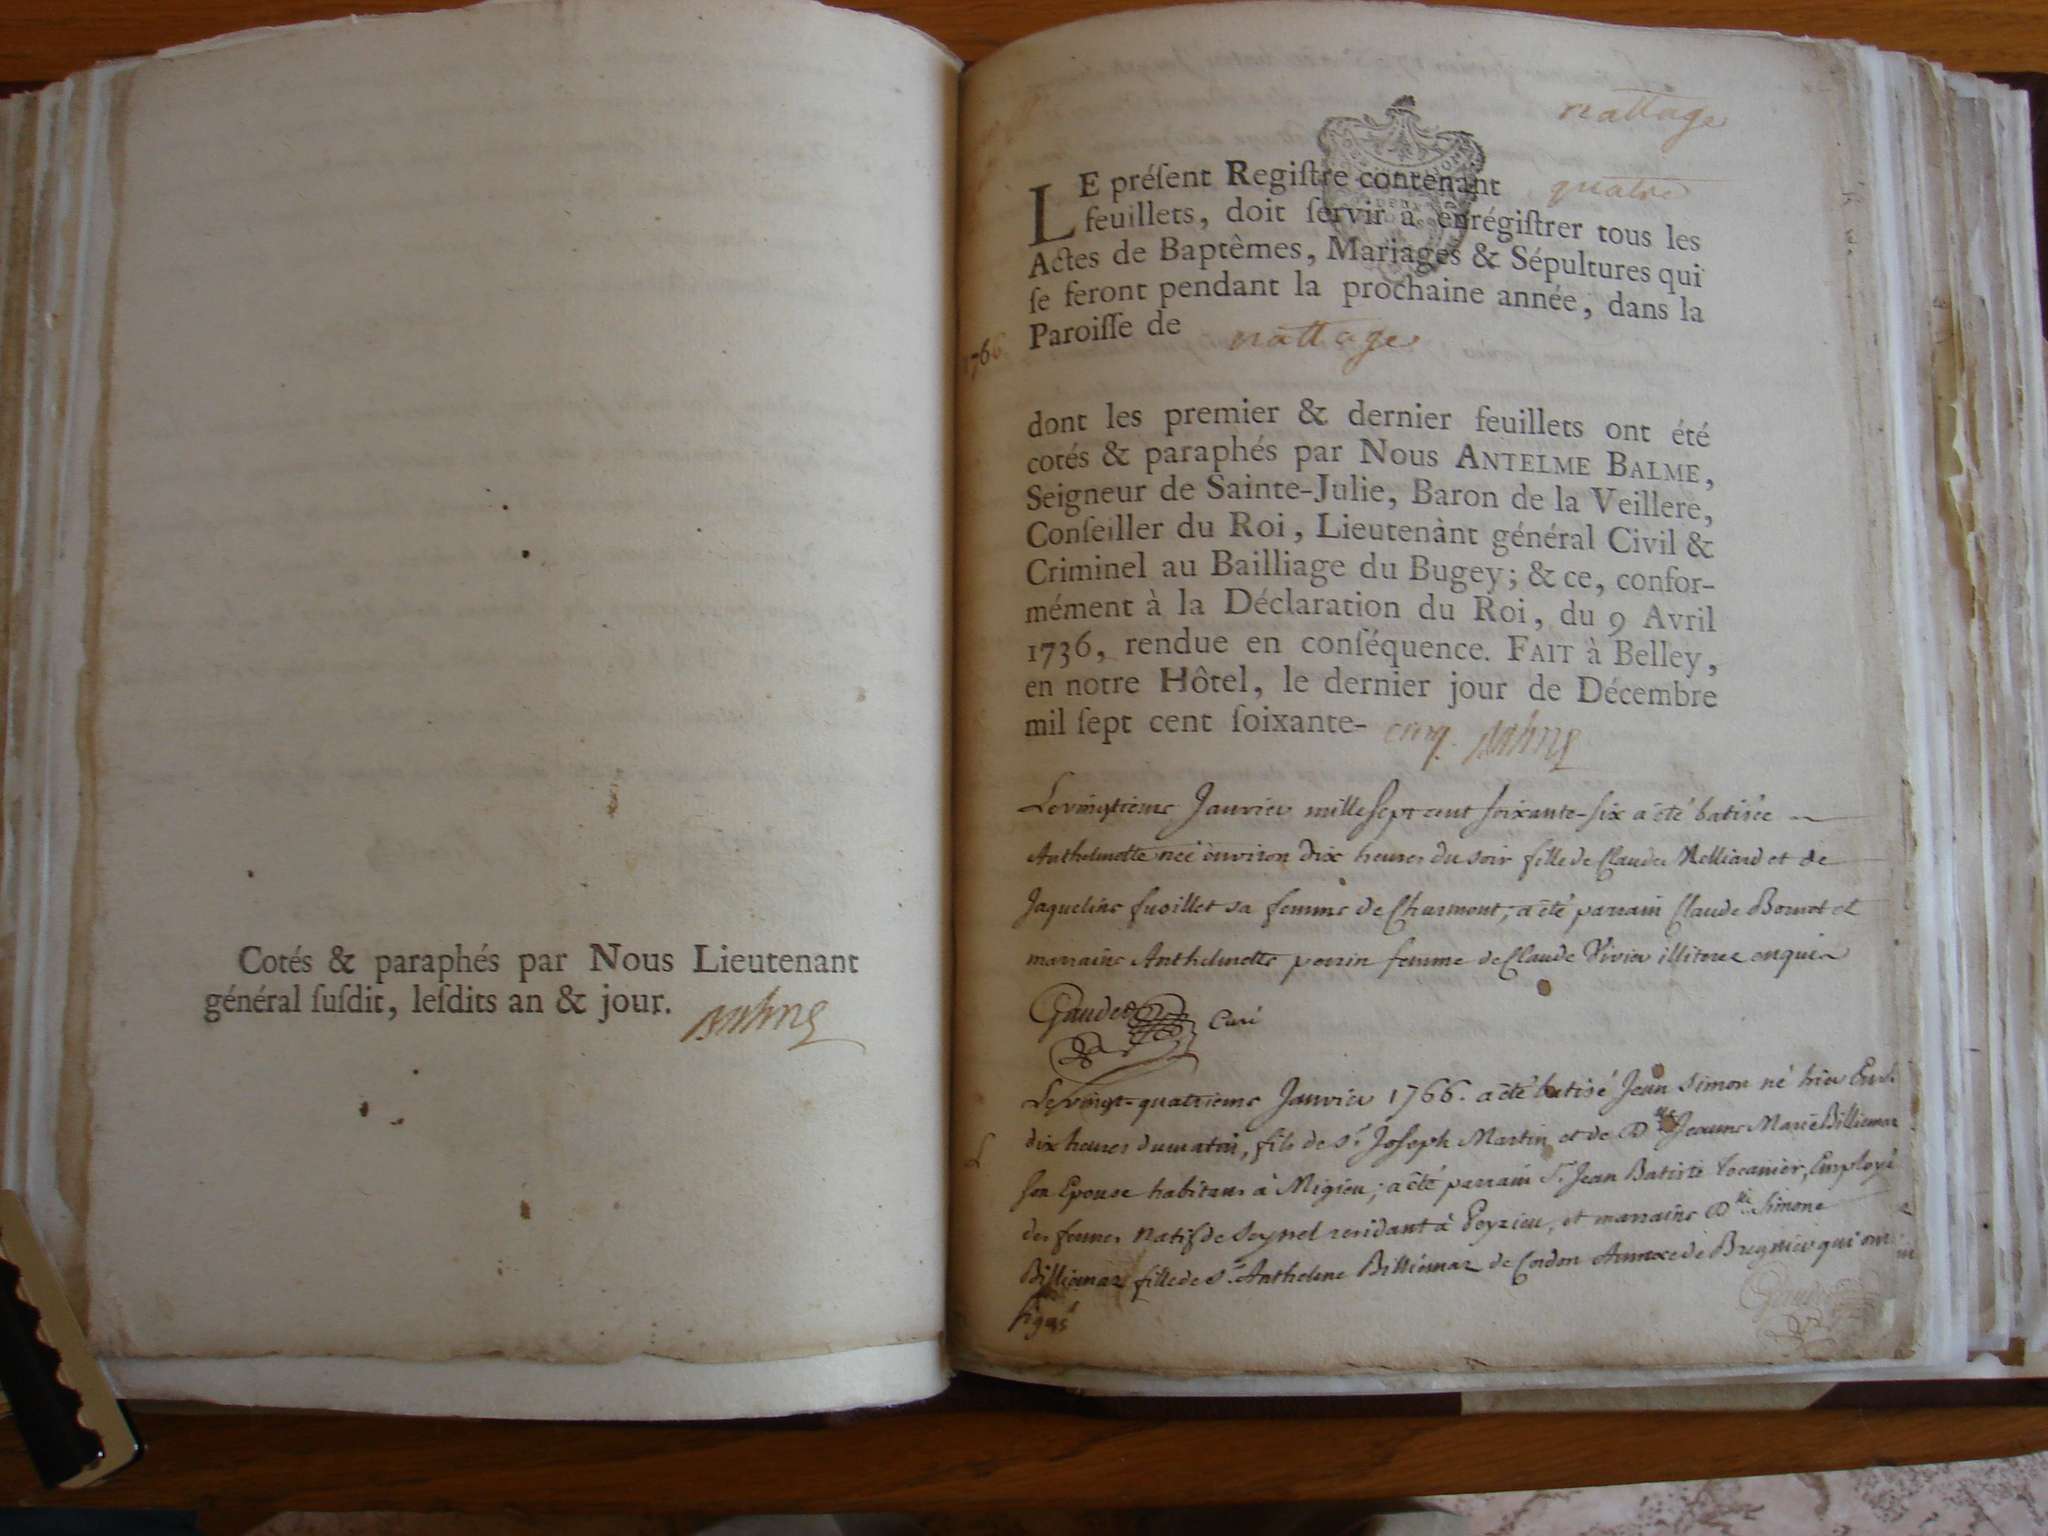 Cotés & paraphés par Nous Lieutenant
général ſuſdit, leſdits an & jour.
nattage
LE préſent Regiſtre contenant quatre
feuillets, doit ſervir à enrégiſtrer tous les
Actes de Baptêmes, Mariages & Sépultures qui
ſe feront pendant la prochaine année, dans la
Paroiſſe de nattage
1766
dont les premier & dernier feuillets ont été
cotés & paraphés par Nous ANTELME BALME,
Seigneur de Sainte-Julie, Baron de la Veillere,
Conſeiller du Roi, Lieutenànt général Civil &
Criminel au Bailliage du Bugey; & ce, confor-
mément à la Déclaration du Roi, du 9 Avril
1736, rendue en conſéquence. FAIT à Belley,
en notre Hôtel, le dernier jour de Décembre
mil ſept cent ſoixante- cinq.
Le vingtieme Janvier mille sept cent soixante-six a été batisée
Anthelmette née environ dix heures du soir fille de Claude Relliard et de
Jaqueline fusillet sa femme de Charmont; a été parrain Claude Bornet et
marraine Anthelmette perrin femme de Claude Vivier illiterez enquis
Gaudet Curé
Le vingt-quatrieme Janvier 1766. a été batisé Jean Simon né hier
dix heures du matin, fils de Sr Joseph Martin et de Dlle Jeanne Marie Billiemaz
son Epouse habitans à Migieu; a été parrain Sr Jean Batiste Employé
des fermes natif de Seyssel residant à Peyzieu, et marraine Dlle Simone
Billiemaz fille de Sr Anthelme Billiémaz de Cordon Annexe de Bregnier qui ont
signés